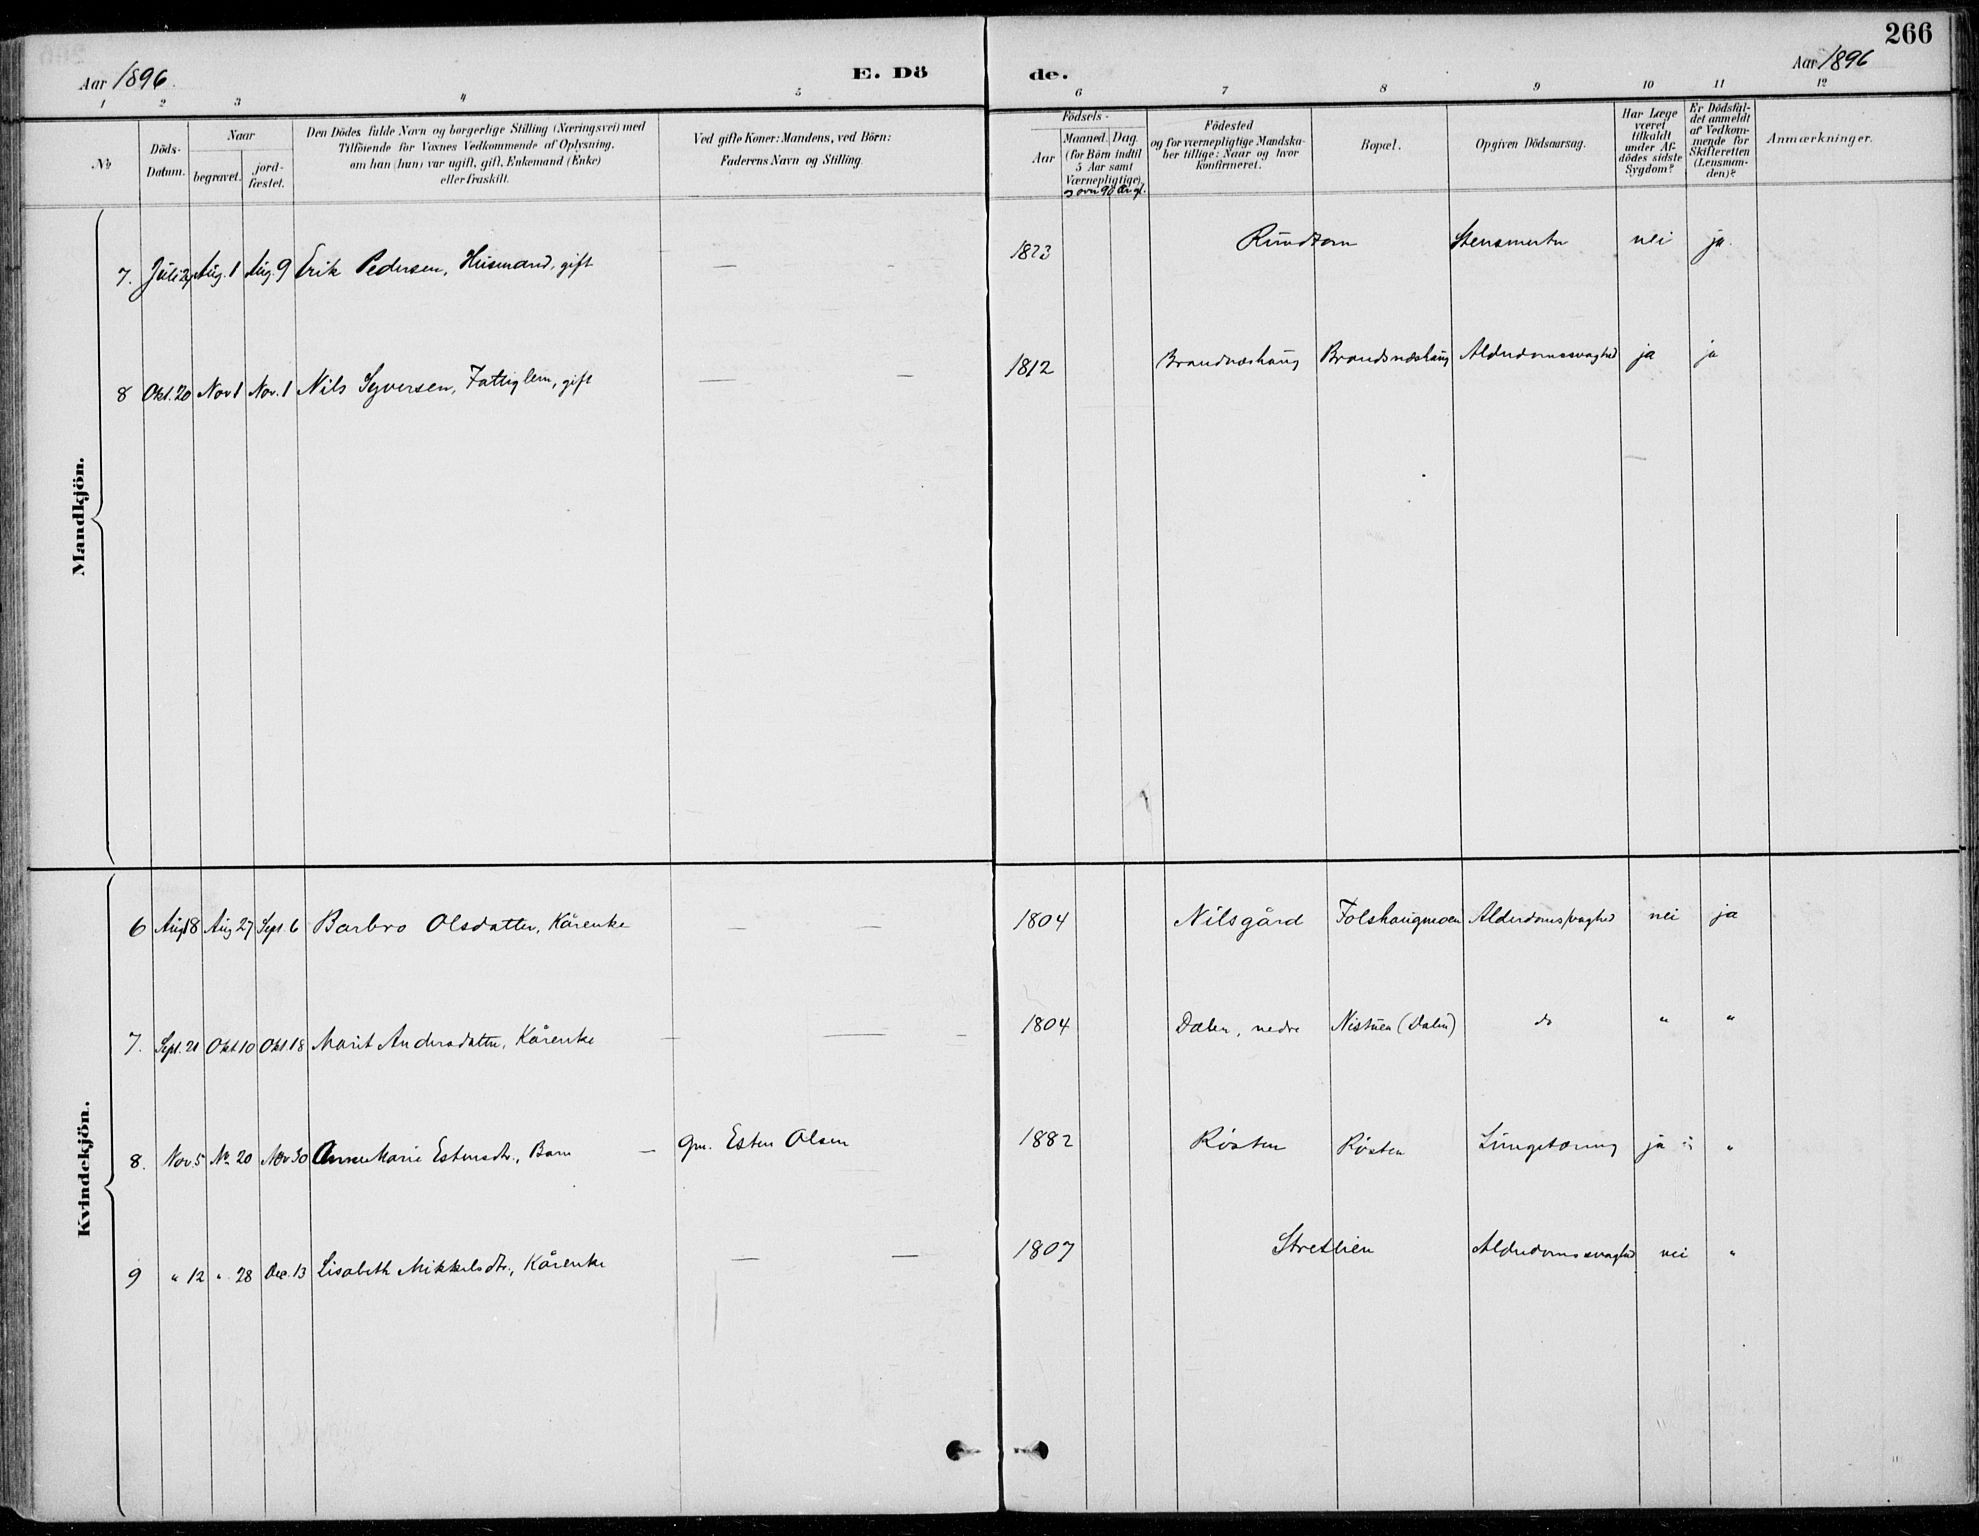 266
Aar 1896.
E. Dö
de.
Aar 1896
1 2 3 4 5 6 7 8 9 10 11 12
No
Döds-Datum.
Naar
begravet.
jord-fæstet.
Den Dödes fulde Navn og borgerlige Stilling (Næringsvei) med
Tilföiende for Voxnes Vedkommende af Oplysning,
om han (hun) var ugift, gift, Enkemand (Enke)
eller fraskilt.
Ved gifte Koner: Mandens, ved Börn:
Faderens Navn og Stilling.
Födsels-
Aar
Maaned. Dag.
(for Börn indtil
5 Aar samt
Værnepligtige)
Födested
og for værnepligtige Mandska-
ber tillige: Naar og hvor
konfirmeret.
Bopæl.
Opgiven Dödsaarsag.
Har Læge
været
tilkaldt
under Af-
dödes sidste
Sygdom?
Er Dödsfal-
det anmeldt
af Vedkom-
mende for
Skifteretten
(Lensman-
den)?
Anmærkninger.
Mandkjön.
7. Juli Aug. 1 Aug. 9 Erik Pedersen, Husmand, gift — - 1823 Rundtom Stensmerter nei ja.
8 Okt. 20 Nov 1 Nov. 1 Nils Syversen, Fattiglem, gift — - 1812 Brandneshaug Brandsneshaug Alderdomssvaghed ja ja
Kvindekjön.
6 Aug 18 Aug 27 Sept 6 Barbro Olsdatter, Kårenke - - 1804 Nilsgård Folshaugmoen Alderdomssvaghed nei ja
7. Sept. 21 Okt 10 Okt. 18 Marit Andersdatter, Kårenke - — - 1804 Dalen, nedre Nistuen (Dalen) do " "
8. Nov. 5 Nov 20 Nov 30 Anne Marie Estensdtr., Barn — Gm. Esten Olsen 1882 Røsten Røsten Lungetæring ja "
9 " 12 " 28 Dec. 13 Lisabeth Mikkelsdtr., Kårenke — — 1807 Stretlien Alderdomssvaghed nei "